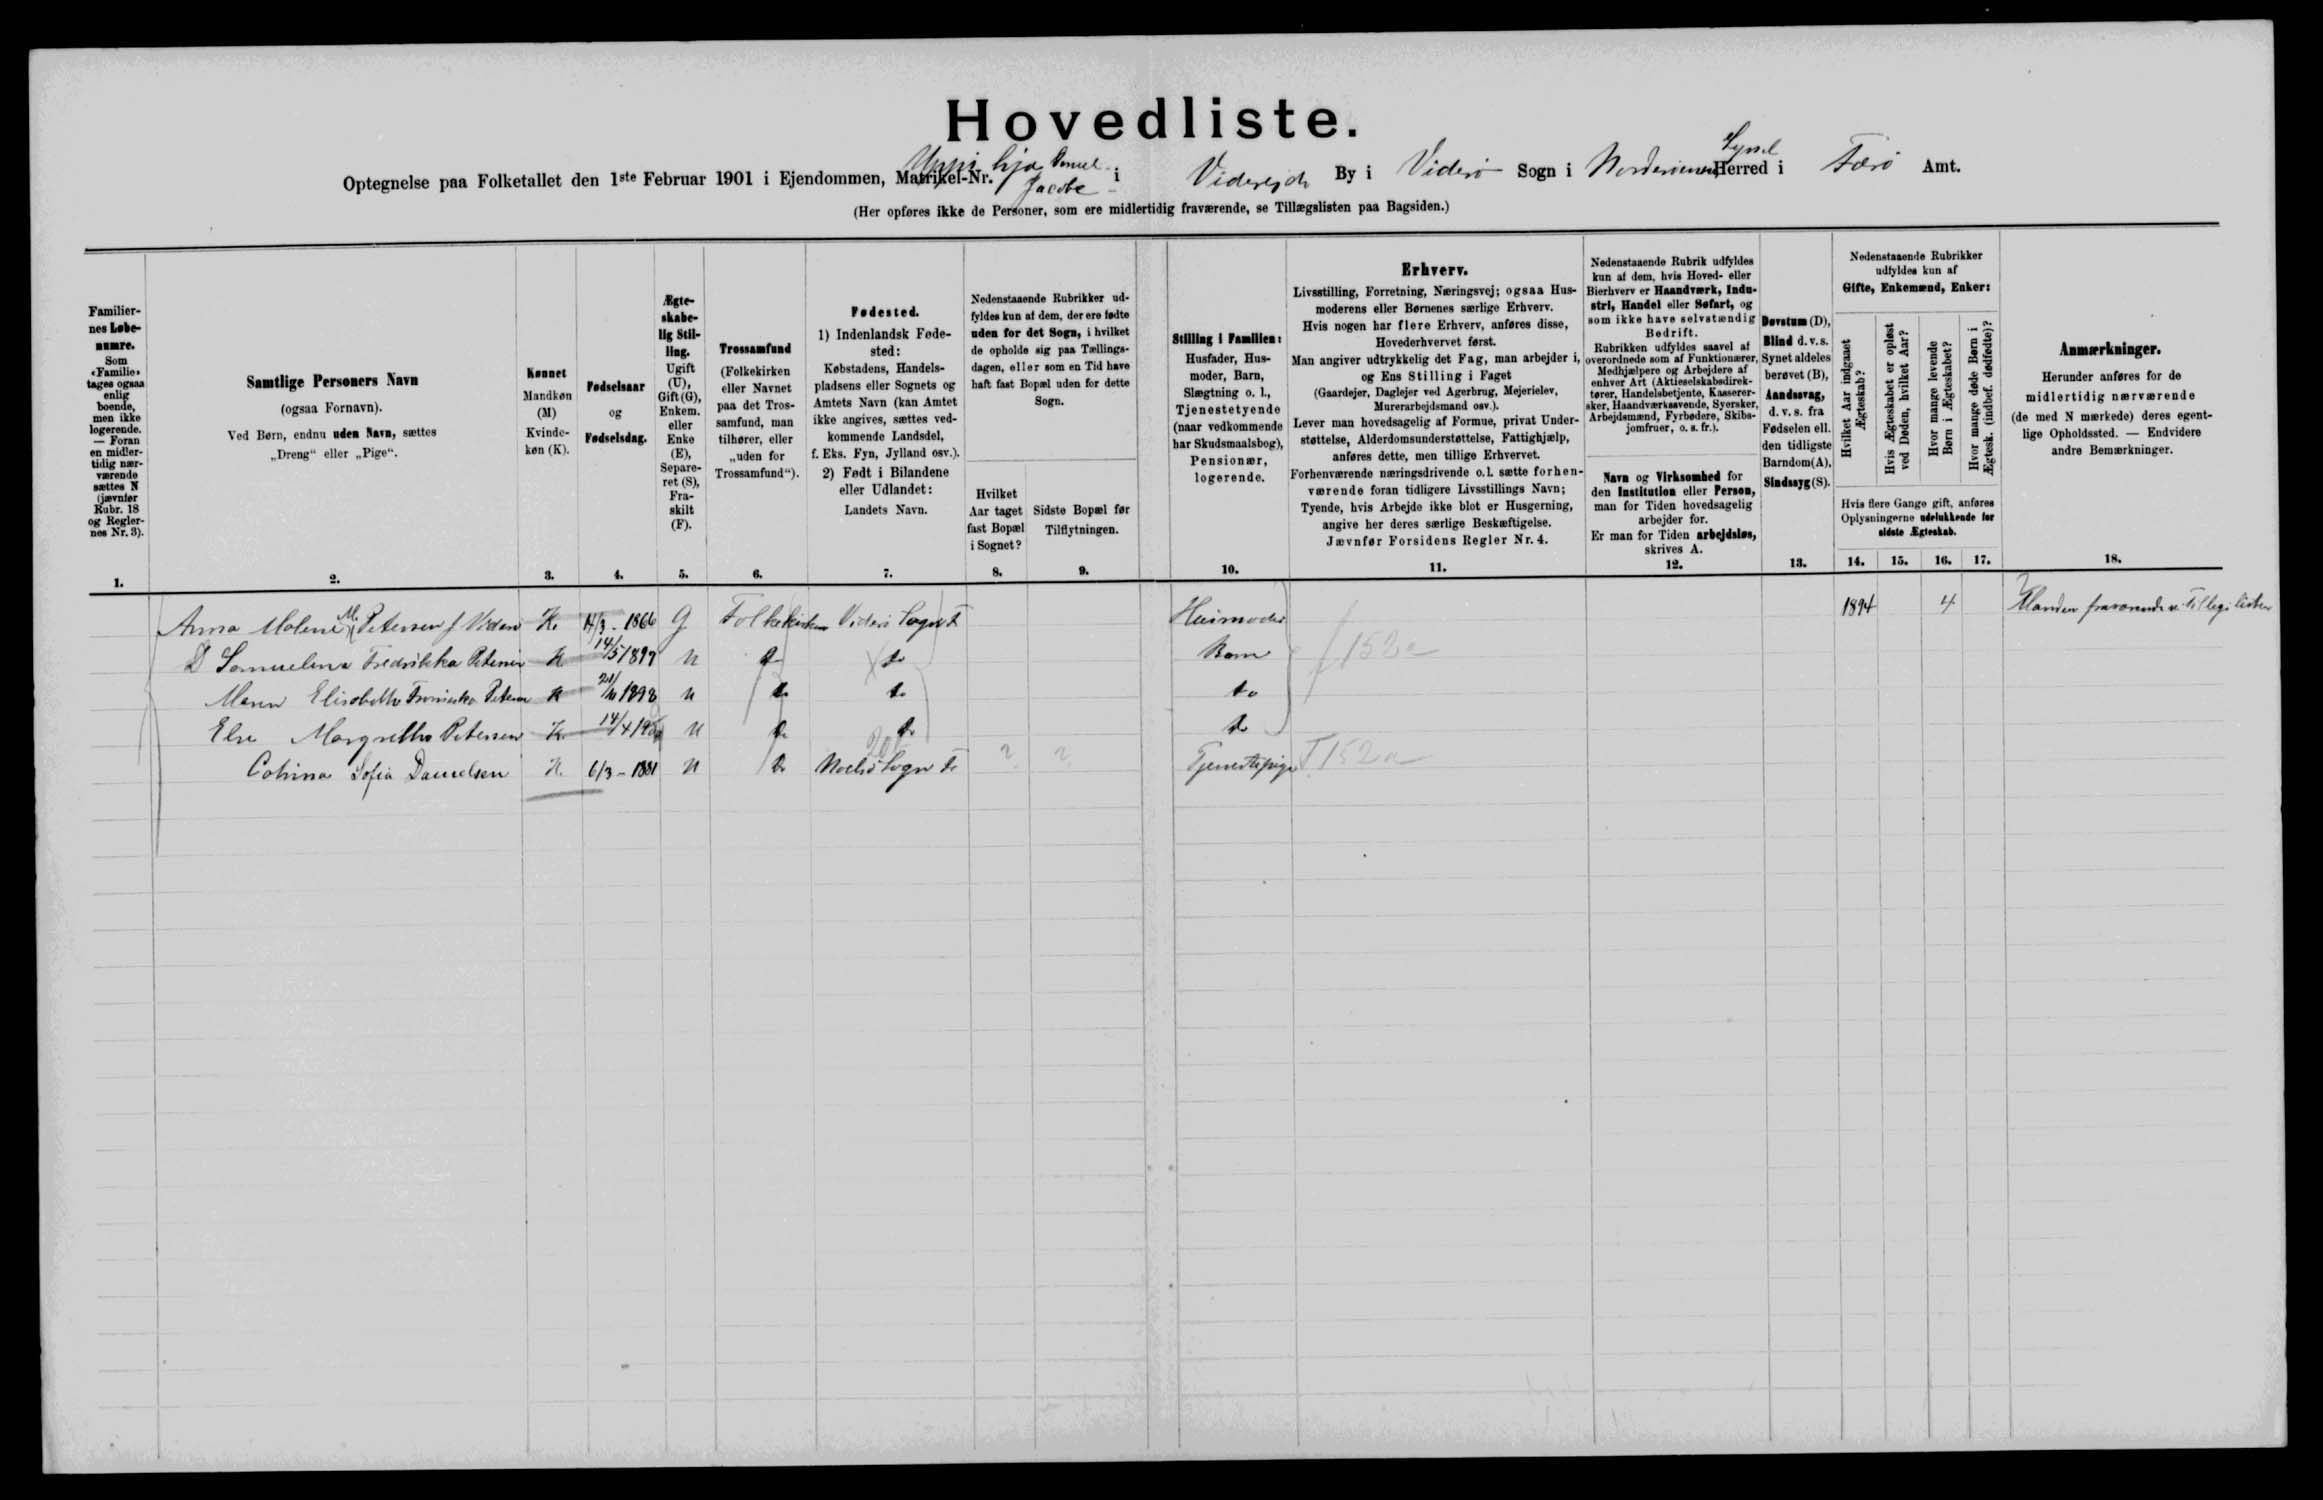 Hovedliste.
Optegnelse paa Folketallet den 1ste Februar 1901 i Ejendommen, Matrikel-Nr. Uppi hja Daniel Jacobs i Viderejde By i Viderø Sogn i Norderøernes Herred Syssel i Færø Amt.
(Her opføres ikke de Personer, som ere midlertidig fraværende, se Tillægslisten paa Bagsiden.)
Familier-
nes Løbe-
numre.
Som
«Familie»
tages ogsaa
enlig
boende,
men ikke
logerende.
— Foran
en midler-
tidig nær-
værende
sættes N
(jævnfør
Rubr. 18
og Regler-
nes Nr. 3).
1.
Samtlige Personers Navn
(ogsaa Fornavn).
Ved Børn, endnu uden Navn, sættes
„Dreng“ eller „Pige“.
2.
Kønnet
Mandkøn
(M)
Kvinde-
køn (K).
3.
Fødselsaar
og
Fødselsdag.
4.
Ægte-
skabe-
lig Stil-
ling.
Ugift
(U),
Gift (G),
Enkem.
eller
Enke
(E),
Separe-
ret (S),
Fra-
skilt
(F).
5.
Trossamfund
(Folkekirken
eller Navnet
paa det Tros-
samfund, man
tilhører, eller
„uden for
Trossamfund“).
6.
Fødested.
1) Indenlandsk Føde-
sted:
Købstadens, Handels-
pladsens eller Sognets og
Amtets Navn (kan Amtet
ikke angives, sættes ved-
kommende Landsdel,
f. Eks. Fyn, Jylland osv.).
2) Født i Bilandene
eller Udlandet:
Landets Navn.
7.
Nedenstaaende Rubrikker ud-
fyldes kun af dem, der ere fødte
uden for det Sogn, i hvilket
de opholde sig paa Tællings-
dagen, eller som en Tid have
haft fast Bopæl uden for dette
Sogn.
Hvilket
Aar taget
fast Bopæl
i Sognet?
8.
Sidste Bopæl før
Tilflytningen.
9.
Stilling i Familien:
Husfader, Hus-
moder, Barn,
Slægtning o. l.,
Tjenestetyende
(naar vedkommende
har Skudsmaalsbog),
Pensionær,
logerende.
10.
Erhverv.
Livsstilling, Forretning, Næringsvej; ogsaa Hus-
moderens eller Børnenes særlige Erhverv.
Hvis nogen har flere Erhverv, anføres disse,
Hovederhvervet først.
Man angiver udtrykkelig det Fag, man arbejder i,
og Ens Stilling i Faget
(Gaardejer, Daglejer ved Agerbrug, Mejerielev,
Murerarbejdsmand osv.).
Lever man hovedsagelig af Formue, privat Under-
støttelse, Alderdomsunderstøttelse, Fattighjælp,
anføres dette, men tillige Erhvervet.
Forhenværende næringsdrivende o. l. sætte forhen-
værende foran tidligere Livsstillings Navn;
Tyende, hvis Arbejde ikke blot er Husgerning,
angive her deres særlige Beskæftigelse.
Jævnfør Forsidens Regler Nr. 4.
11.
Nedenstaaende Rubrik udfyldes
kun af dem, hvis Hoved- eller
Bierhverv er Haandværk, Indu-
stri, Handel eller Søfart, og
som ikke have selvstændig
Bedrift.
Rubrikken udfyldes saavel af
overordnede som af Funktionærer,
Medhjælpere og Arbejdere af
enhver Art (Aktieselskabsdirek-
tører, Handelsbetjente, Kasserer-
sker, Haandværkssvende, Syersker,
Arbejdsmænd, Fyrbødere, Skibs-
jomfruer, o. s. fr.).
Navn og Virksomhed for
den Institution eller Person,
man for Tiden hovedsagelig
arbejder for.
Er man for Tiden arbejdsløs,
skrives A.
12.
Døvstum (D),
Blind d. v. s.
Synet aldeles
berøvet (B),
Aandssvag,
d. v. s. fra
Fødselen ell.
den tidligste
Barndom (A),
Sindssyg (S).
13.
Nedenstaaende Rubrikker
udfyldes kun af
Gifte, Enkemænd, Enker:
Hvilket Aar indgaaet
Ægteskab?
Hvis Ægteskabet er opløst
ved Døden, hvilket Aar?
Hvor mange levende
Børn i Ægteskabet?
Hvor mange døde Børn i
Ægtesk. (indbef. dødfødte)?
Hvis flere Gange gift, anføres
Oplysningerne udelukkende for
sidste Ægteskab.
14. 15. 16. 17.
Anmærkninger.
Herunder anføres for de
midlertidig nærværende
(de med N mærkede) deres egent-
lige Opholdssted. — Endvidere
andre Bemærkninger.
18.
Anna Malene M. Petersen f. Viderø K. 1866 G Folkekirken Viderø Sogn F Husmoder 1894 4 Manden fraværende se Tillægslisten
D Samuelina Fredrikka Petersen K 14/5 1897 U do do Barn 152a
Maren Elisabeth Petersen K 1898 U do do do
Else Margretha Petersen K. 14/4 1900 U do do do
Cathrina Sofia Danielsen K. 6/3 - 1881 U do Sogn F ? ? Tjenestepige T 152a